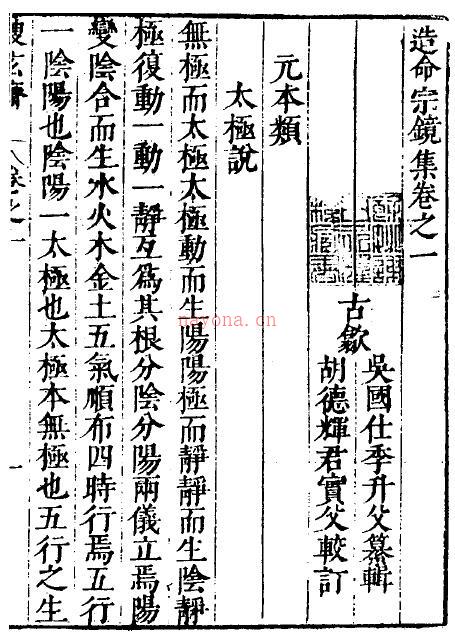 造命宗鏡集卷之一
古歙
吳國仕季升父纂輯
胡德輝君實父較訂
元本類
太極說
無極而太極太極動而生陽陽極而靜靜而生陰靜
極復動一動一靜互爲其根分陰分陽兩儀立焉陽
變陰合而生水火木金土五氣順布四時行焉五行
一陰陽也陰陽一太極也太極本無極也五行之生
卷之一
一
nayona.cn